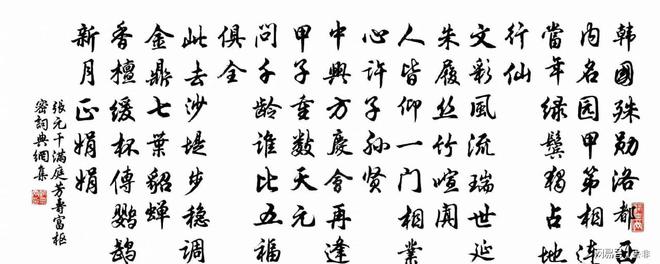 韓國殊勋洛都西
内名园甲第相连
當年绿鬓獨占地
行仙
文彩風流瑞世延
朱履丝竹喧闻
人皆仰一門相業
心許子孙贤
中興方慶會再逢
甲子重数天元
問千龄谁比五福
俱全
此去沙堤步稳调
金鼎七葉貂蝉
香檀缓杯傳鹦鹉
新月正娟娟
張元干满庭芳壽富枢
密詞典網集
网易号